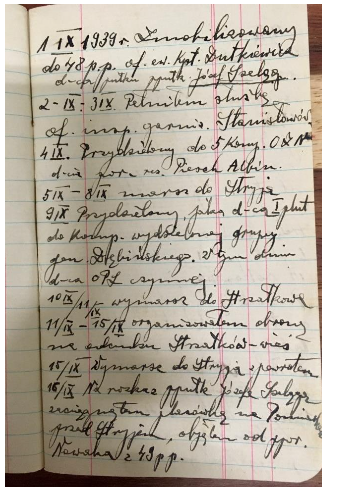 1 IX 1939 r. Zmobilizowany
do 48 p.p. of. ew. Kpt. Dutkiewicz
d-ca pułku ppułk. Józef
2-IX - 3 IX. Pełniłem służbę
of. insp. garnis. Stanisławów
4 IX. Przydzielony do 5 Komp.
d-ca por. rez. Piesch Albin.
5 IX - 8 IX marsz do Stryja
9 IX Przydzielony jako d-ca I plut
do Komp. wydzielonej grupy
gen. Dębińskiego. W tym dniu
d-ca OPL czynnej
10 IX/11 IX wymarsz do Strzałkowa
11/IX - 15/IX organizowałem obronę
na odcinku Strzałków-wieś
15/IX Wymarsz do Stryja z powrotem
16/IX Na rozkaz ppułk Józefa
zaciągnąłem placówkę na
przed Stryjem, objąłem od ppor.
Nowaka z 49 p.p.